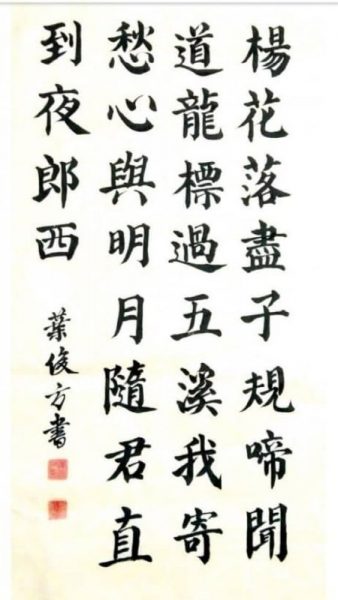 楊花落盡子規啼聞
道龍標過五溪我寄
愁心與明月隨君直
到夜郎西
葉俊方書